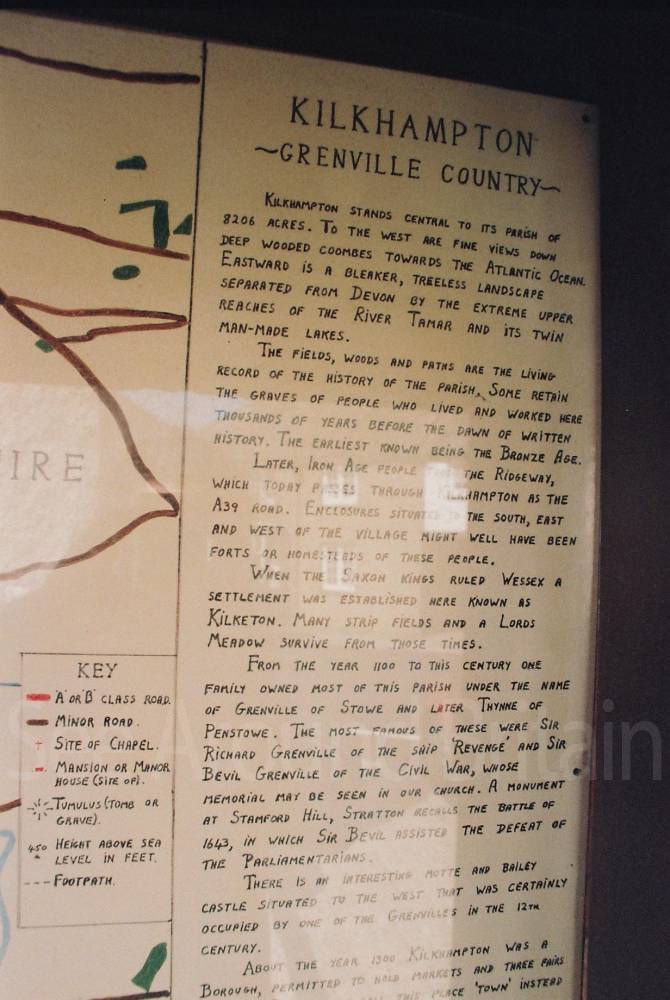 KILKHAMPTON
~GRENVILLE COUNTRY~
KILKHAMPTON STANDS CENTRAL TO ITS PARISH OF
8206 ACRES. TO THE WEST ARE FINE VIEWS DOWN
DEEP WOODED COOMBES TOWARDS THE ATLANTIC OCEAN.
EASTWARD IS A BLEAKER, TREELESS LANDSCAPE
SEPARATED FROM DEVON BY THE EXTREME UPPER
REACHES OF THE RIVER TAMAR AND ITS TWIN
MAN-MADE LAKES.
THE FIELDS, WOODS AND PATHS ARE THE LIVING
RECORD OF THE HISTORY OF THE PARISH. SOME RETAIN
THE GRAVES OF PEOPLE WHO LIVED AND WORKED HERE
THOUSANDS OF YEARS BEFORE THE DAWN OF WRITTEN
HISTORY. THE EARLIEST KNOWN BEING THE BRONZE AGE.
LATER, IRON AGE PEOPLE THE RIDGEWAY,
WHICH TODAY PASSES THROUGH KILKHAMPTON AS THE
A39 ROAD. ENCLOSURES SITUATED TO THE SOUTH, EAST
AND WEST OF THE VILLAGE MIGHT WELL HAVE BEEN
FORTS OR HOMESTEADS OF THESE PEOPLE.
WHEN THE SAXON KINGS RULED WESSEX A
SETTLEMENT WAS ESTABLISHED HERE KNOWN AS
KILKETON. MANY STRIP FIELDS AND A LORDS
MEADOW SURVIVE FROM THOSE TIMES.
FROM THE YEAR 1100 TO THIS CENTURY ONE
FAMILY OWNED MOST OF THIS PARISH UNDER THE NAME
OF GRENVILLE OF STOWE AND LATER THYNNE OF
PENSTOWE. THE MOST FAMOUS OF THESE WERE SIR
RICHARD GRENVILLE OF THE SHIP 'REVENGE' AND SIR
BEVIL GRENVILLE OF THE CIVIL WAR, WHOSE
MEMORIAL MAY BE SEEN IN OUR CHURCH. A MONUMENT
AT STAMFORD HILL, STRATTON RECALLS THE BATTLE OF
1643, IN WHICH SIR BEVIL ASSISTED THE DEFEAT OF
THE PARLIAMENTARIANS.
THERE IS AN INTERESTING MOTTE AND BAILEY
CASTLE SITUATED TO THE WEST THAT WAS CERTAINLY
OCCUPIED BY ONE OF THE GRENVILLES IN THE 12TH
CENTURY.
ABOUT THE YEAR 1300 KILKHAMPTON WAS A
BOROUGH, PERMITTED TO HOLD MARKETS AND THREE FAIRS
THIS PLACE 'TOWN' INSTEAD
IRE
KEY
'A' OR 'B' CLASS ROAD.
MINOR ROAD.
SITE OF CHAPEL.
MANSION OR MANOR
HOUSE (SITE OF).
TUMULUS (TOMB OR
GRAVE).
450 HEIGHT ABOVE SEA
LEVEL IN FEET.
FOOTPATH.